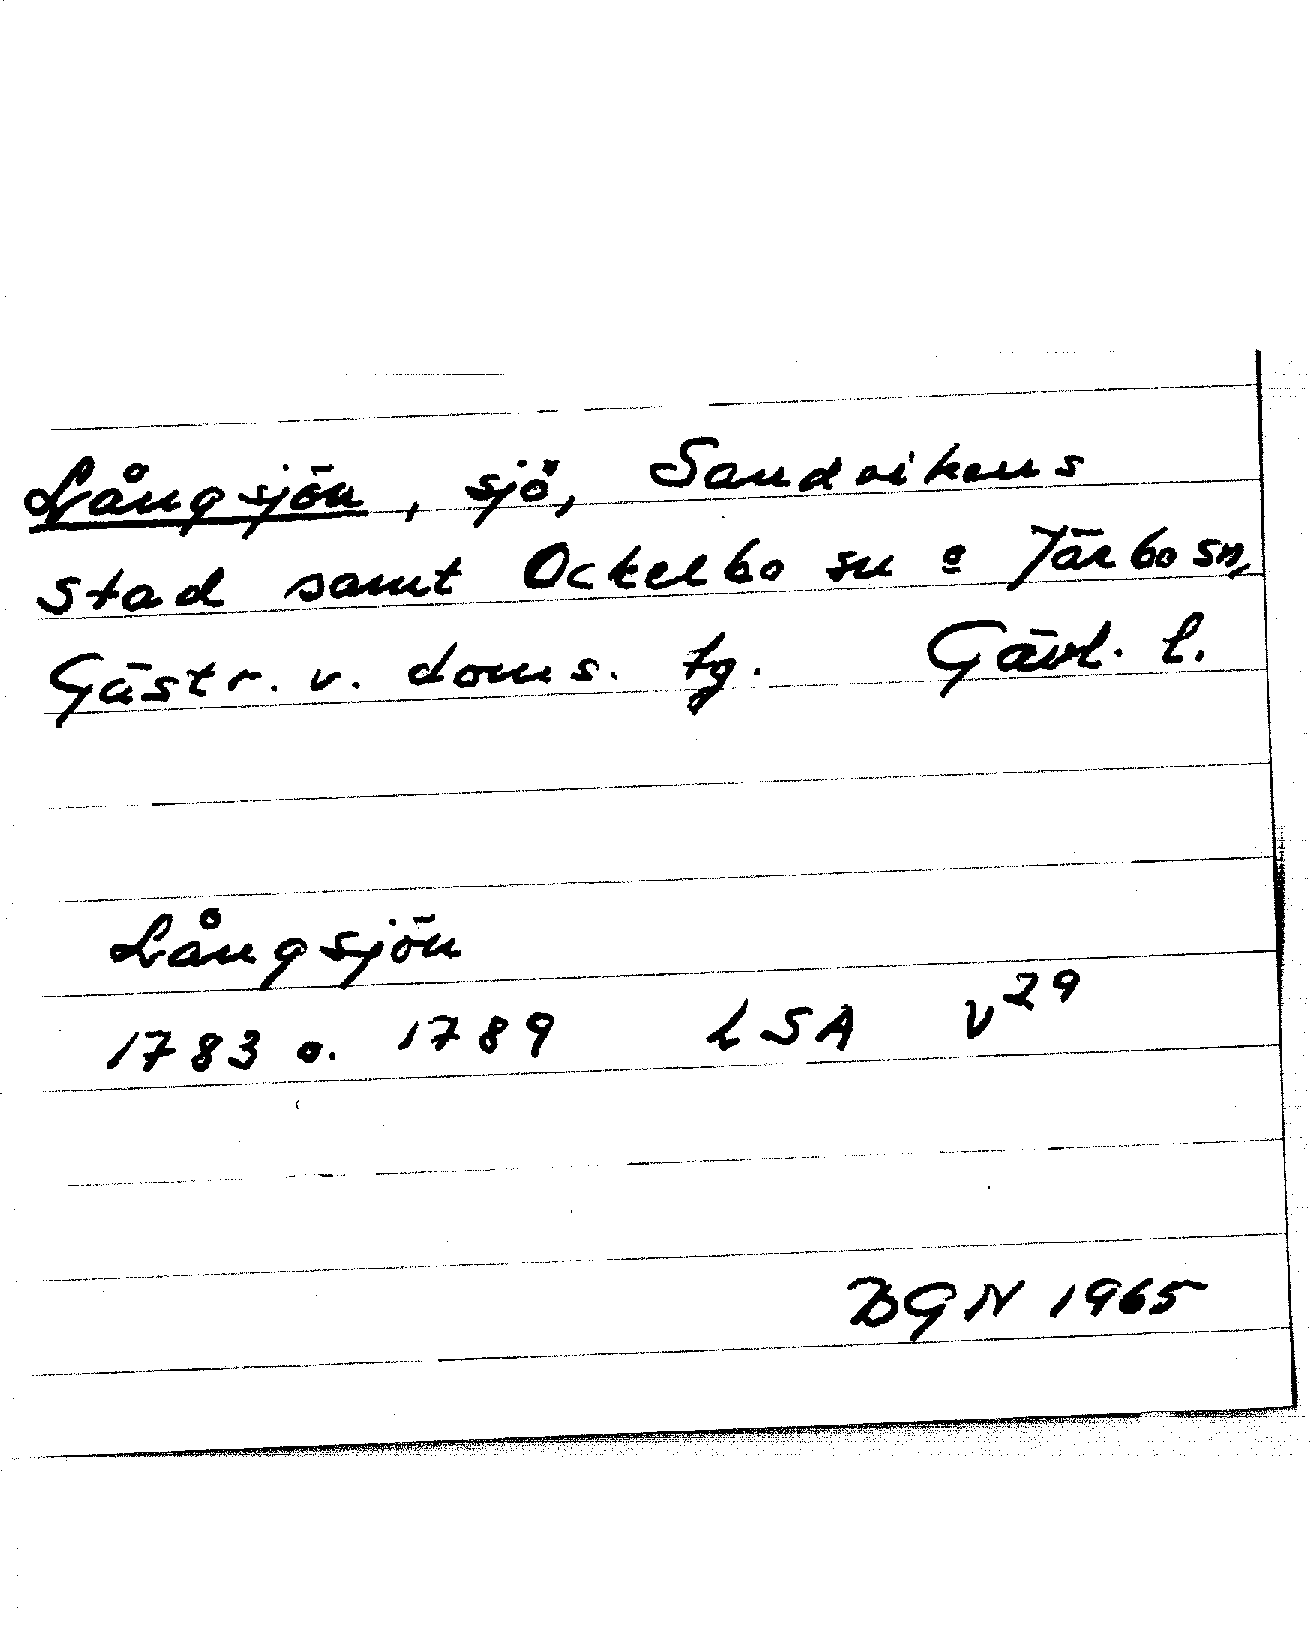 Långsjön, sjö, Sandvikens
stad samt Ockelbo sn o Järbo sn,
Gästr. v. doms. tg. Gävl. l.
Långsjön
1783 o. 1789 LSA V29
BGN 1965